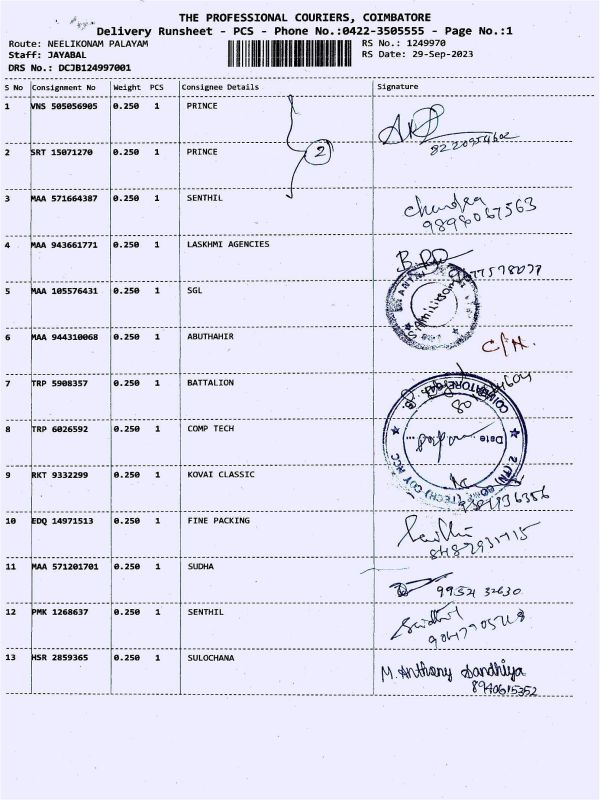 THE PROFESSIONAL COURIERS, COIMBATORE
Delivery Runsheet - PCS - Phone No.:0422-3505555 - Page No.:1
Route: NEELIKONAM PALAYAM RS No.: 1249970
Staff: JAYABAL RS Date: 29-Sep-2023
DRS No.: DCJB124997001
S No Consignment No Weight PCS Consignee Details Signature
1 VNS 505056905 0.250 1 PRINCE
2
2 SRT 15071270 0.250 1 PRINCE
3 MAA 571664387 0.250 1 SENTHIL
Chandra
9898067563
4 MAA 943661771 0.250 1 LASKHMI AGENCIES
5 MAA 105576431 0.250 1 SGL
6 MAA 944310068 0.250 1 ABUTHAHIR
7 TRP 5908357 0.250 1 BATTALION
8 TRP 6026592 0.250 1 COMP TECH
Date
9 RKT 9332299 0.250 1 KOVAI CLASSIC
10 EDQ 14971513 0.250 1 FINE PACKING
11 MAA 571201701 0.250 1 SUDHA
12 PMK 1268637 0.250 1 SENTHIL
13 HSR 2859365 0.250 1 SULOCHANA
M. Anthony Sandhiya
8940615352